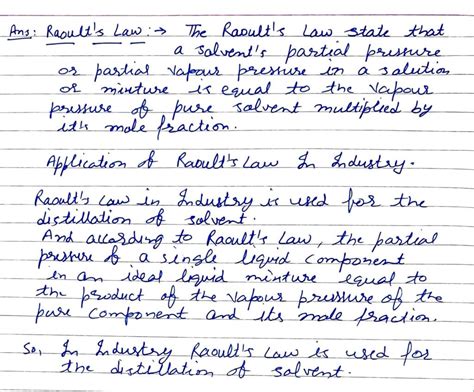 Ans: Raoult's Law :→ The Raoult's Law state that
a solvent's partial pressure
or partial vapour pressure in a solution
or mixture is equal to the vapour
pressure of pure solvent multiplied by
it's mole fraction.
Application of Raoult's Law In Industry.
Raoult's Law in Industry is used for the
distillation of solvent.
And according to Raoult's Law, the partial
pressure of a single liquid component
in an ideal liquid mixture equal to
the product of the vapour pressure of the
pure component and its mole fraction.
So, In Industry Raoult's Law is used for
the distillation of solvent.